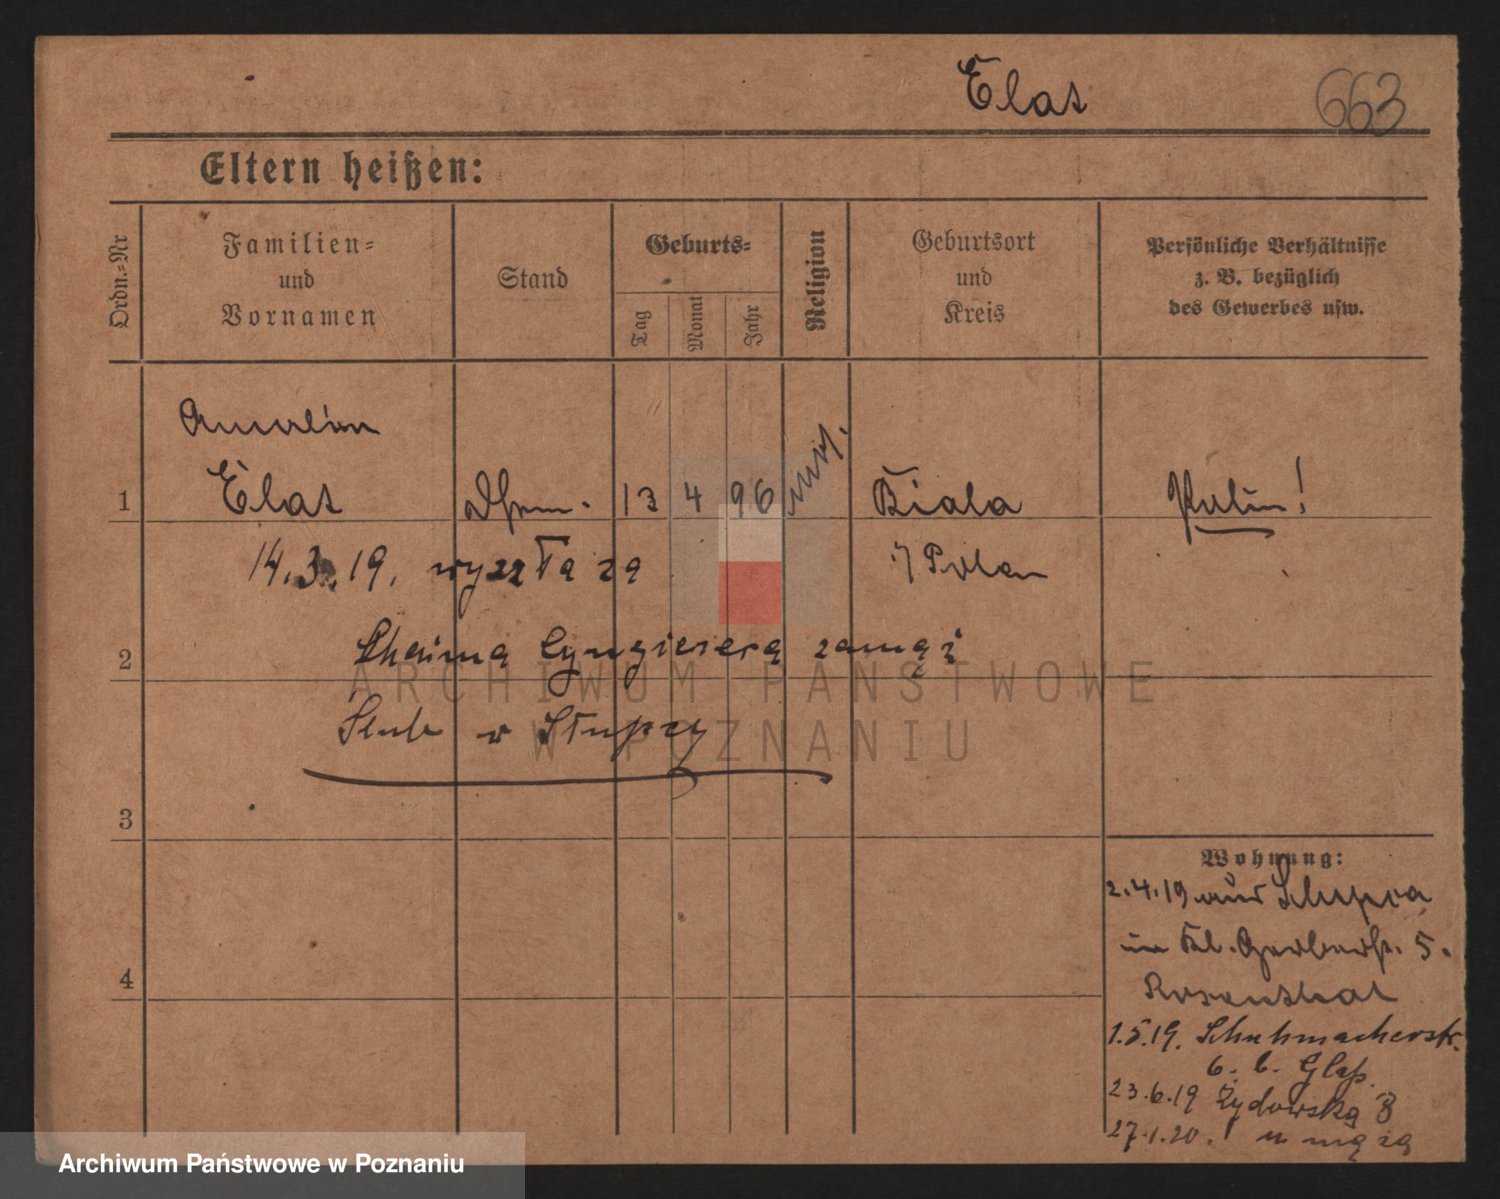 Elas
663
Eltern heißen:
Ordn.-Nr
Familien-
und
Vornamen
Stand
Geburts-
Tag
Monat
Jahr
Religion
Geburtsort
und
Kreis
Persönliche Verhältnisse
z. B. bezüglich
des Gewerbes usw.
1
Elas
13 4 96
mos.
Biala
Polin!
14.3.19. wyszła za
i/ Polen
2
Chaima zamąż
Slub w Słupcy
3
Wohnung:
2.4.19 aus Slupca
in Kl. Gerberstr. 5.
Rosenthal
4
1.5.19. Schuhmacherstr.
6. b. Glaß
23.6.19 Żydowską 8
27.1.20. u męża
ARCHIWUM PAŃSTWOWE
W POZNANIU
Archiwum Państwowe w Poznaniu